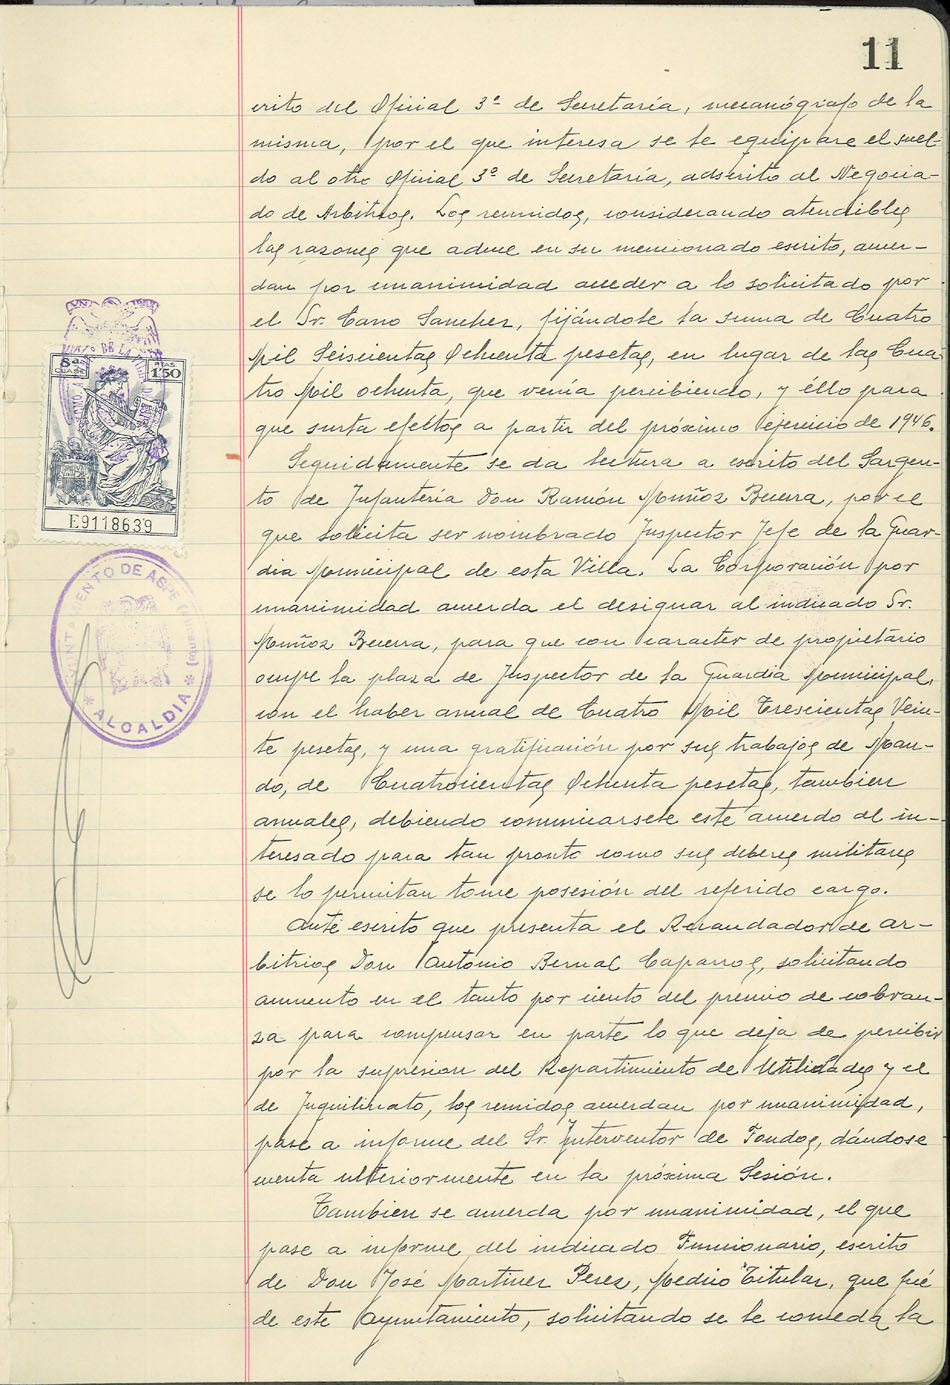 11
crito del Oficial 3º de Secretaría, mecanógrafo de la
misma, por el que interesa se le equipare el suel-
do al otro Oficial 3º de Secretaría, adscrito al Negocia-
do de Arbitrios. Los reunidos, considerando atendibles
las razones que aduce en su mencionado escrito, acuer-
dan por unanimidad acceder a lo solicitado por
el Sr. Cano Sanchez, fijándole la suma de Cuatro
Mil Seiscientas Ochenta pesetas, en lugar de las Cua-
tro Mil ochenta, que venía percibiendo, y éllo para
que surta efectos a partir del próximo ejercicio de 1946.
Seguidamente se da lectura a escrito del Sargen-
to de Infantería Don Ramón Muñoz Becerra, por el
que solicita ser nombrado Inspector Jefe de la Guar-
dia Municipal de esta Villa. La Corporación por
unanimidad acuerda el designar al indicado Sr.
Muñoz Becerra, para que con caracter de propietario
ocupe la plaza de Inspector de la Guardia Municipal,
con el haber anual de Cuatro Mil Trescientas Vein-
te pesetas, y una gratificación por sus trabajos de Man-
do, de Cuatrocientas Ochenta pesetas, tambien
anuales, debiendo comunicarsele este acuerdo al in-
teresado para tan pronto como sus deberes militares
se lo permitan tome posesión del referido cargo.
Ante escrito que presenta el Recaudador de ar-
bitrios Don Antonio Bernal Caparros, solicitando
aumento en el tanto por ciento del premio de cobran-
za para compensar en parte lo que deja de percibir
por la supresion del Repartimiento de Utilidades y el
de Inquilinato, los reunidos acuerdan por unanimidad,
pase a informe del Sr. Interventor de Fondos, dándose
cuenta ulteriormente en la próxima Sesión.
Tambien se acuerda por unanimidad, el que
pase a informe del indicado Funcionario, escrito
de Don José Martinez Perez, Medico Titular, que fué
de este Ayuntamiento, solicitando se le conceda la
8ª CLASE
PTAS 1'50
E9118639
AYUNTAMIENTO DE ASPE (Alicante)
* ALCALDIA *